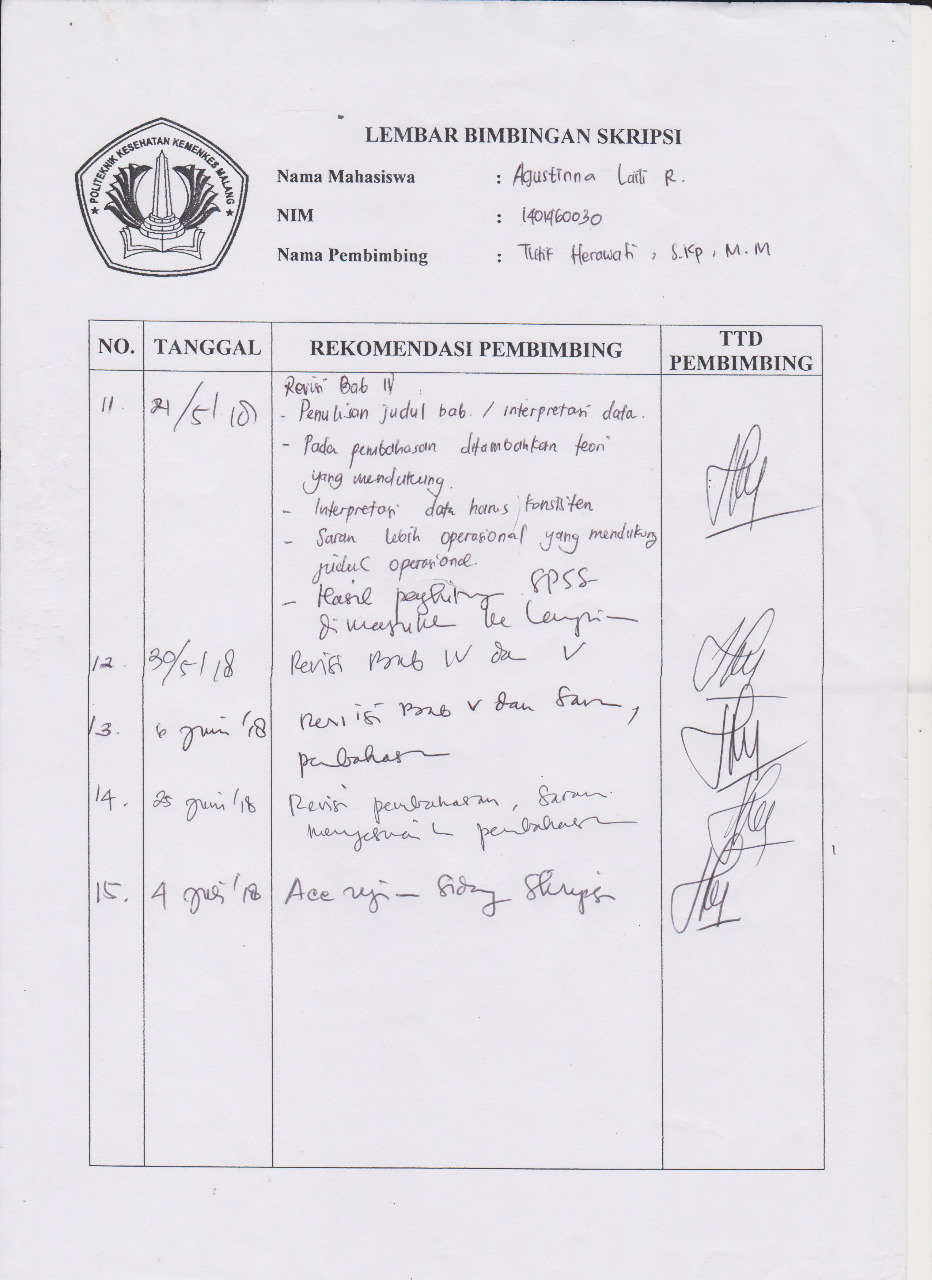 LEMBAR BIMBINGAN SKRIPSI
POLITEKNIK KESEHATAN KEMENKES MALANG
Nama Mahasiswa : Agustinna Laili R.
NIM : 1401460030
Nama Pembimbing : Tutik Herawati, S.Kp, M.M
NO. TANGGAL REKOMENDASI PEMBIMBING TTD PEMBIMBING
Revisi Bab IV
11. 21/5/18 - Penulisan judul bab. / interpretasi data.
- Pada pembahasan ditambahkan teori
yang mendukung.
- Interpretasi data harus konsisten
- Saran lebih operasional yang mendukung
judul operasional.
- Hasil penghitung SPSS
dimasukke ke lampiran
12. 30/5/18 Revisi Bab IV dan V
13. 6 Juni '18 Revisi Bab V dan Saran,
pembahasan
14. 25 Juni '18 Revisi pembahasan, Saran
menyesuaikan pembahasan
15. 4 Juli '18 Acc ujian Sidang Skripsi